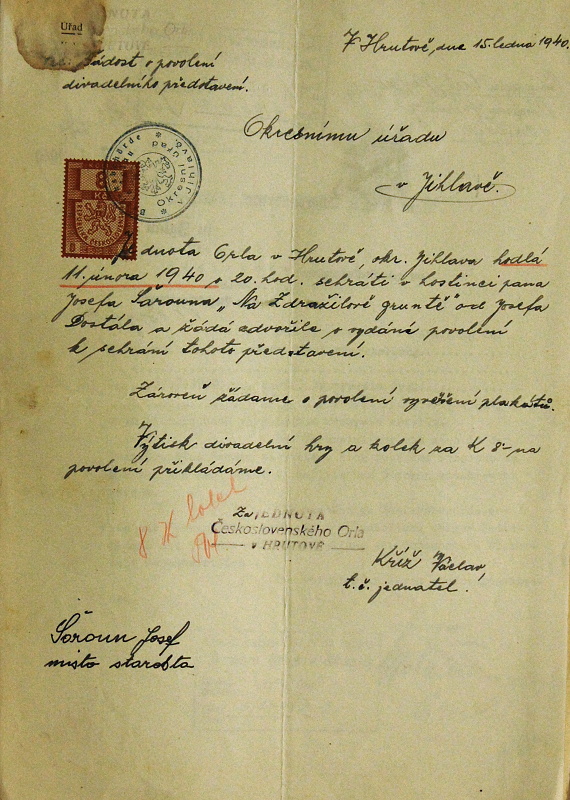 Úřad
V Hrutově, dne 15. ledna 1940.
žádost o povolení
divadelního představení.
Okresnímu úřadu
v Jihlavě.
Okresní úřad
8
Jednota Orla v Hrutově, okr. Jihlava hodlá
11. února 1940 o 20. hod. sehráti v hostinci pana
Josefa Šárouna „Na Zdražilově gruntě" od Josefa
Dostála a žádá zdvořile o vydání povolení
k sehrání tohoto představení.
Zároveň žádame o povolení vyvěšení plakátů.
Výtisk divadelní hry a kolek za K 8- na
povolení přikládáme.
8 K kolek
Za JEDNOTA
Československého Orla
V HRUTOVĚ
Kříž Václav,
t. č. jednatel.
Šároun Josef
místo starosta